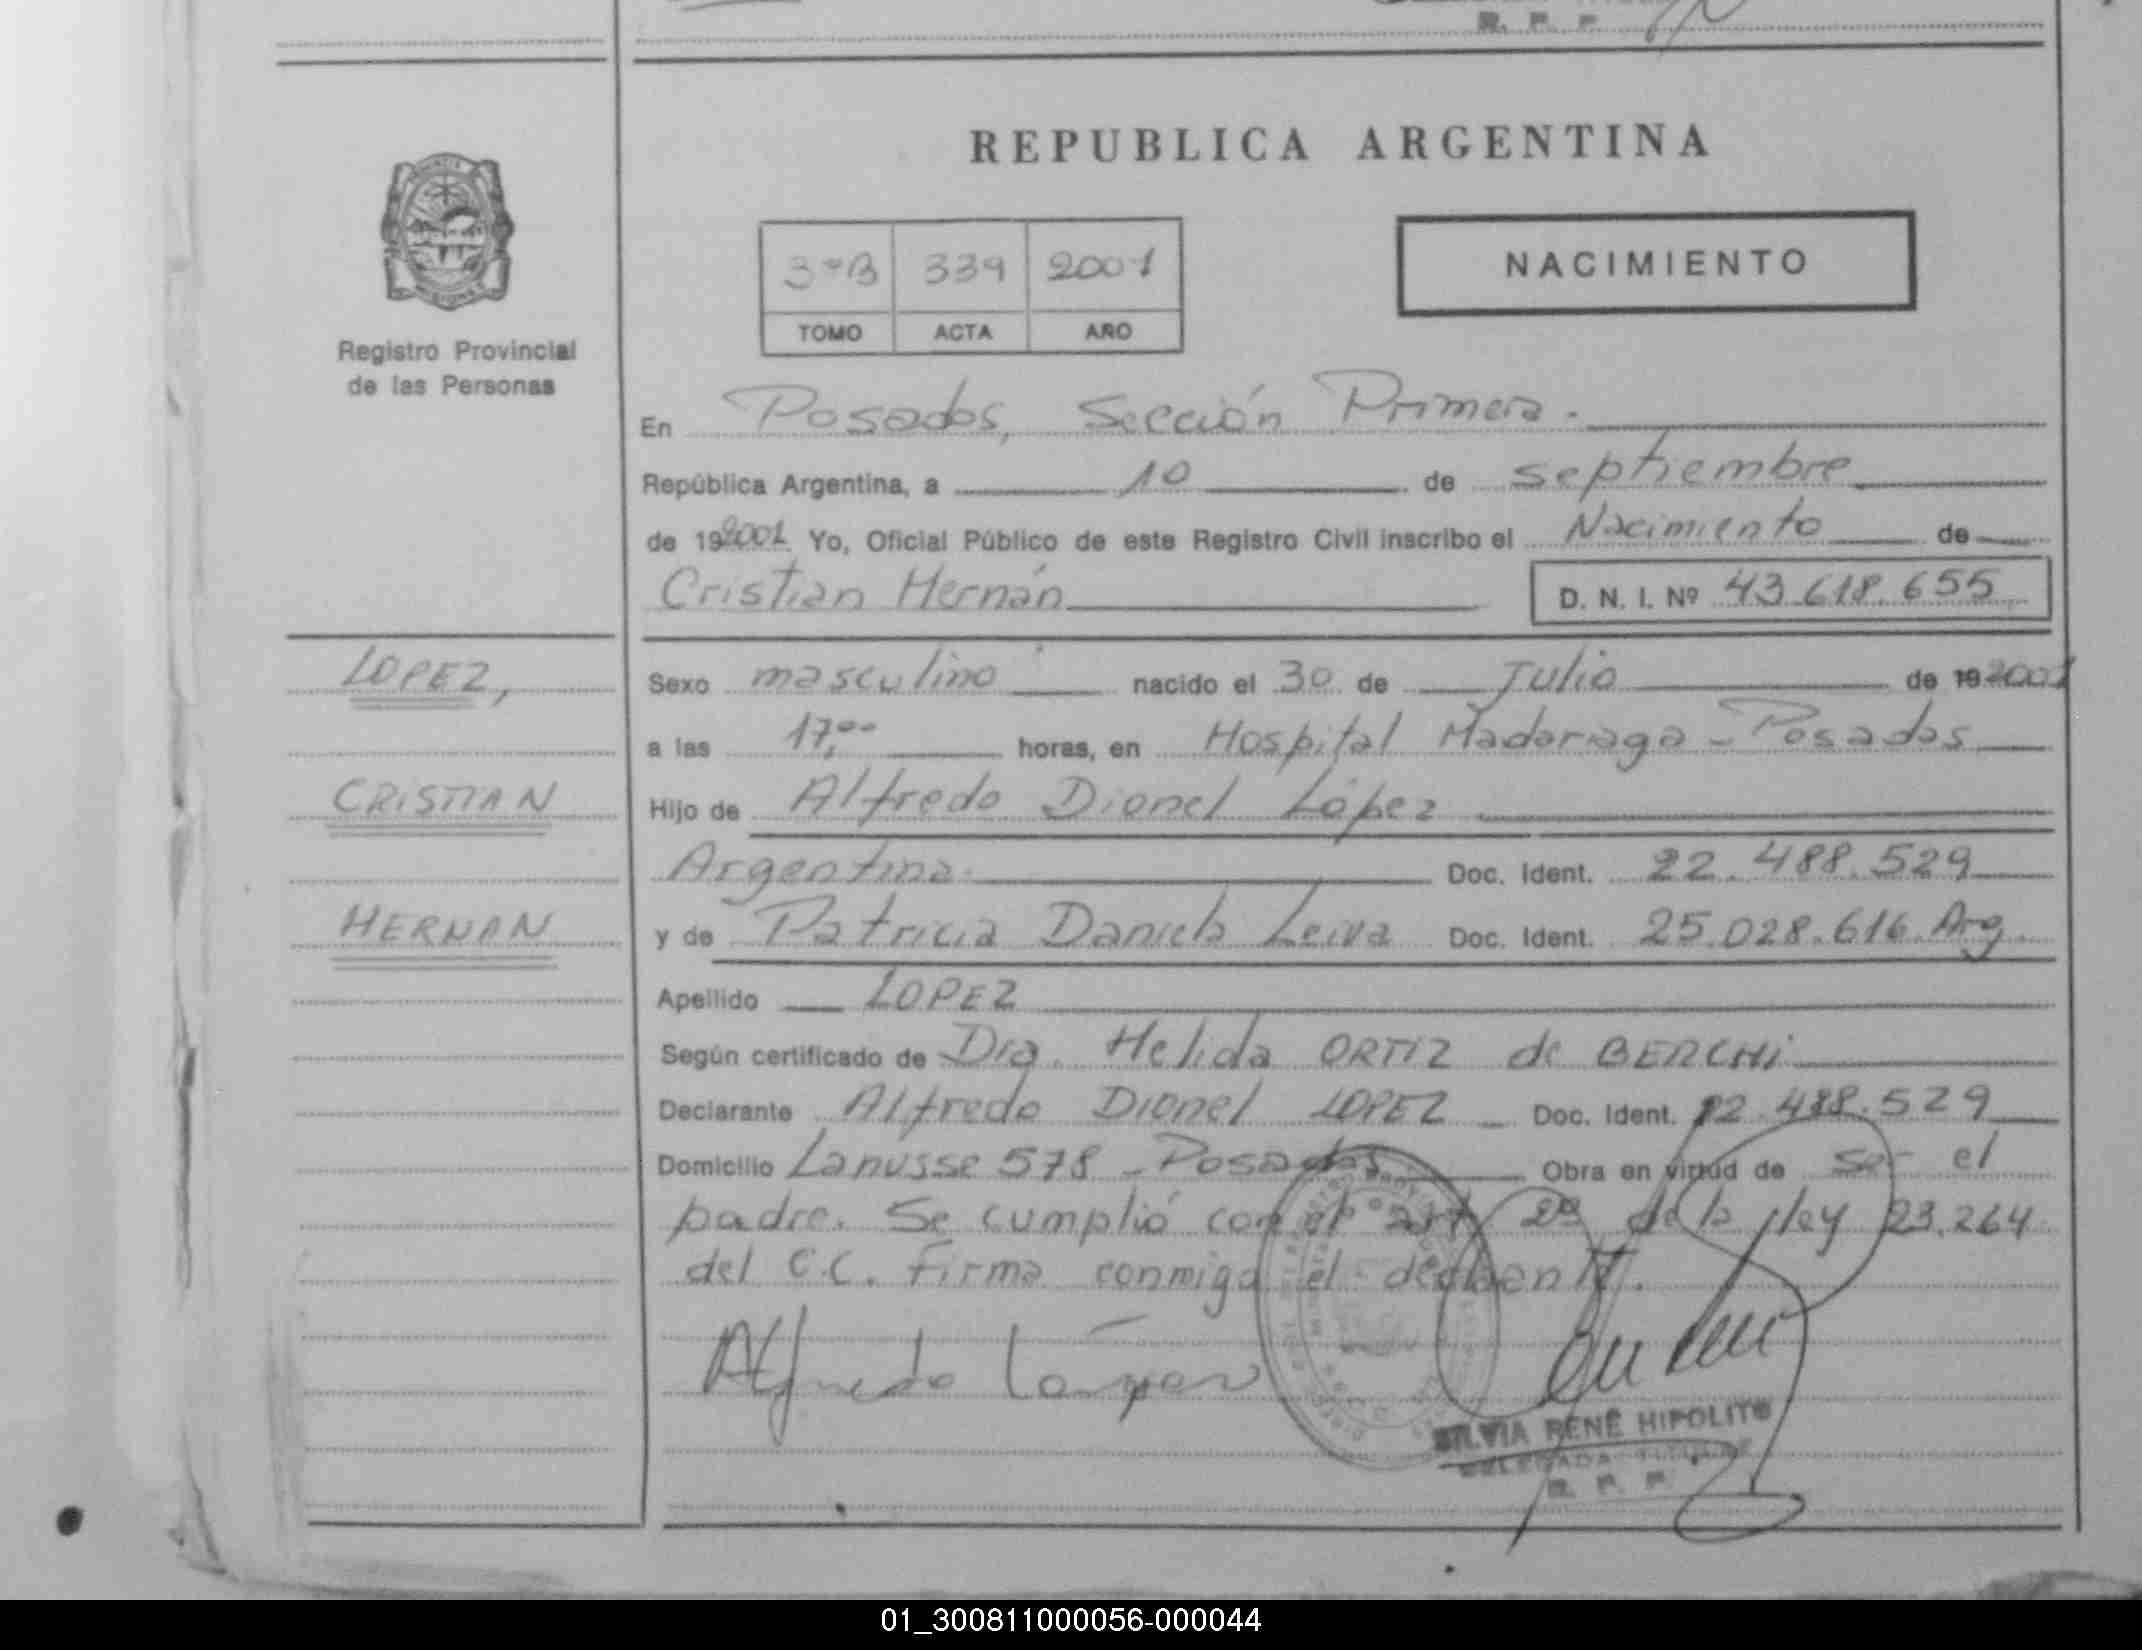 R. P. P.
REPUBLICA ARGENTINA
3ºB 339 2001
TOMO ACTA AÑO
NACIMIENTO
Registro Provincial
de las Personas
En Posadas, Sección Primera.
República Argentina, a 10 de septiembre
de 192001 Yo, Oficial Público de este Registro Civil inscribo el Nacimiento de
Cristian Hernán D. N. I. Nº 43.618.655
LOPEZ,
CRISTIAN
HERNAN
Sexo masculino nacido el 30 de Julio de 19 2001
a las 17,00 horas, en Hospital Madariaga - Posadas
Hijo de Alfredo Dionel López
Argentina. Doc. Ident. 22.488.529
y de Patricia Daniela Leiva Doc. Ident. 25.028.616 Arg.
Apellido LOPEZ
Según certificado de Dra. Helida ORTIZ de BERCHI
Declarante Alfredo Dionel LOPEZ Doc. Ident. 22.488.529
Domicilio Lanusse 578 - Posadas Obra en virtud de ser el
padre. Se cumplió con el art 2º de la ley 23.264
del C.C. Firma conmigo el declarante.
Alfredo López
SILVIA RENÉ HIPOLITO
DELEGADA TITULAR
R. P. P.
01_300811000056-000044